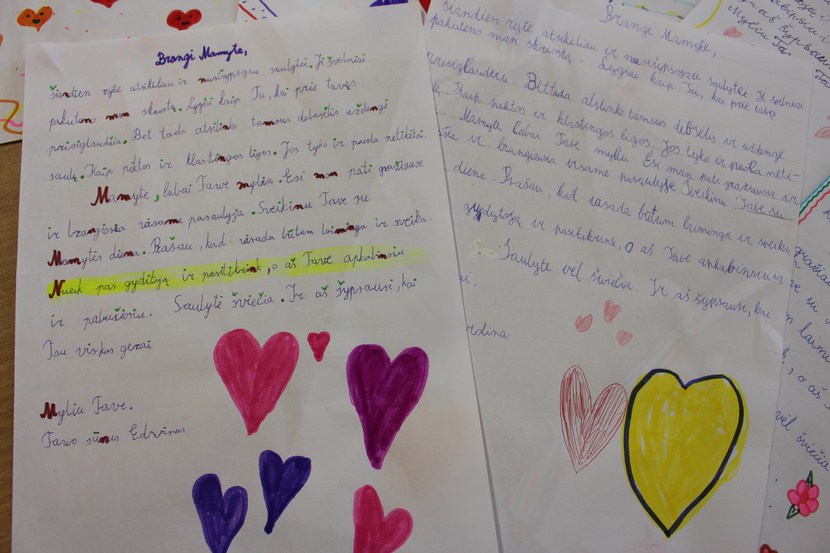 Brangi Mamyte,
šiandien ryte atsikėliau ir nusišypsojau saulytei. Ji švelniai
pakuteno man skruostą. Lygiai kaip Tu, kai prie tavęs
prisiglaudžiu. Bet tada atslinko tamsus debesėlis uždengė
saulę. Kaip piktos ir klastingos ligos. Jos tyko ir puola netikėtai.
Mamyte, labai Tave myliu. Esi man pati gražiausia
ir brangiausia visame pasaulyje. Sveikinu Tave su
Mamytės diena. Prašau, kad visada būtum laiminga ir sveika.
Nueik pas gydytoją ir pasitikrink, o aš Tave apkabinsiu
ir pabučiosiu. Saulytė šviečia. Ir aš šypsausi, kai
Tau viskas gerai
Myliu Tave.
Tavo sūnus Edvinas
Brangi Mamyte,
šiandien ryte atsikėliau ir nusišypsojau saulytei. Ji švelniai
pakuteno man skruostą. Lygiai kaip Tu, kai prie tavęs
prisiglaudžiu. Bet tada atslinko tamsus debesėlis ir uždengė
Kaip piktos ir klastingos ligos. Jos tyko ir puola netikė-
Mamyte labai Tave myliu. Esi man pati gražiausia ir
ir brangiausia visame pasaulyje. Sveikinu Tave su
diena. Prašau, kad visada būtum laiminga ir sveika
gydytoją ir pasitikrink, o aš Tave apkabinsiu ir
Saulytė vėl šviečia. Ir aš šypsausi, kai
Myliu Tave